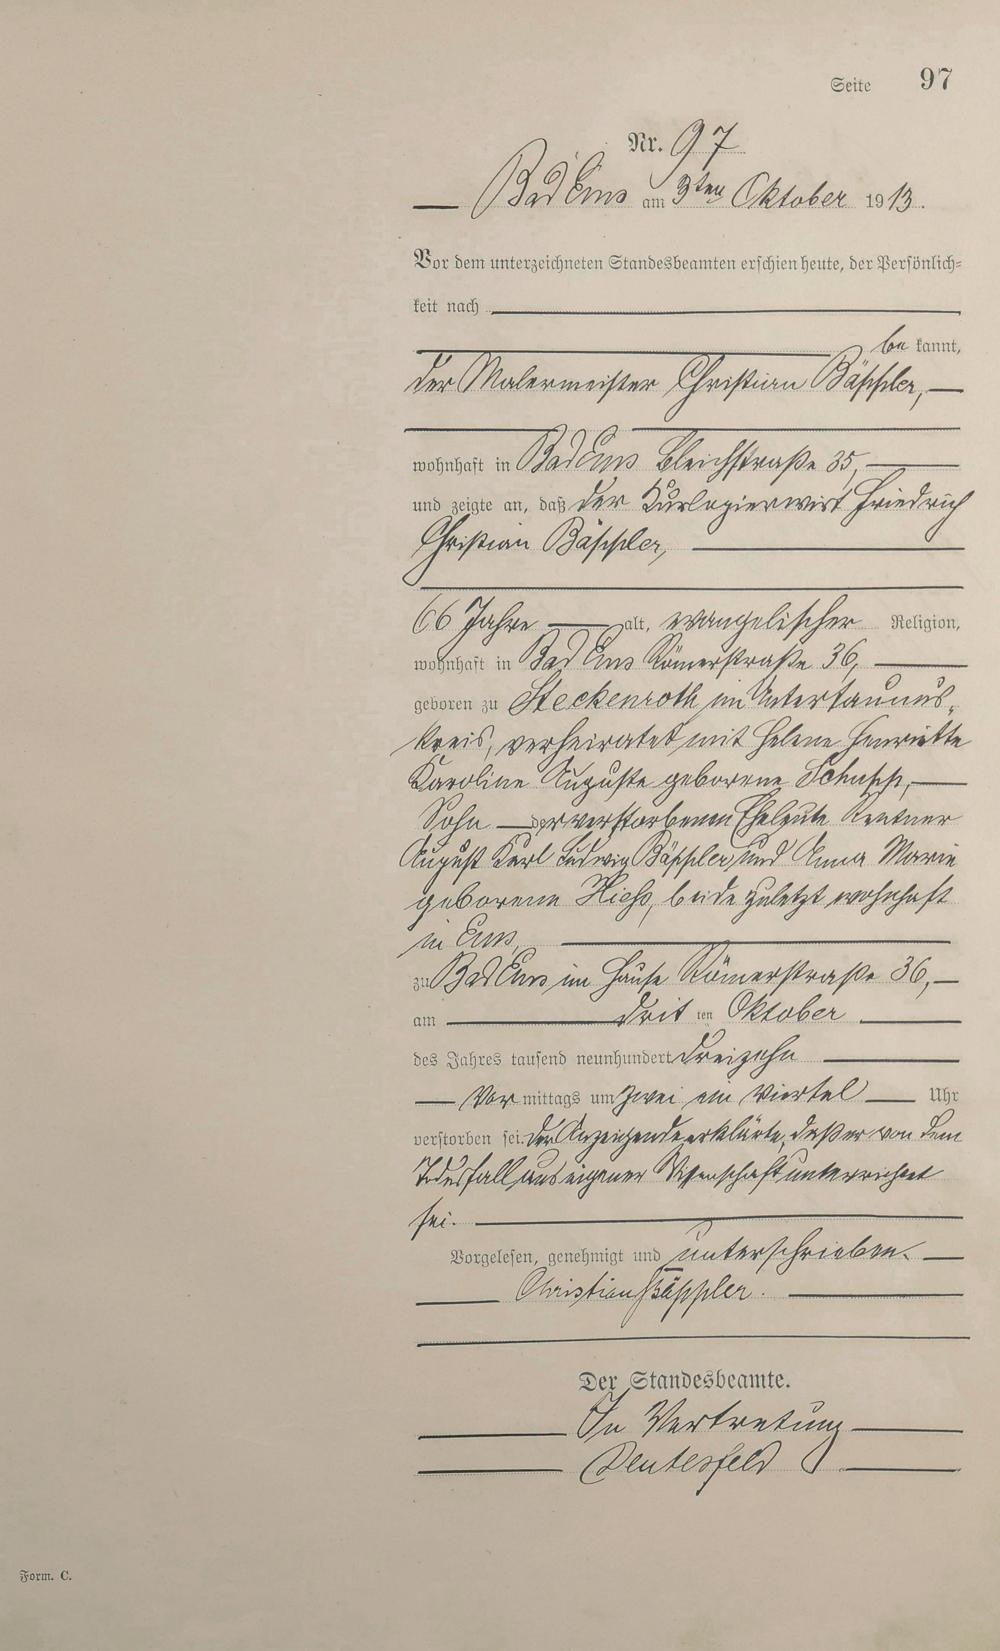 Seite 97
Nr. 97
Bad Ems am 3ten Oktober 1913.
Vor dem unterzeichneten Standesbeamten erschien heute, der Persönlich-
keit nach
be kannt,
der Malermeister Christian Bäppler,
wohnhaft in Bad Ems Bleichstraße 35,
und zeigte an, daß der Kurlogierwirt Friedrich
Christian Bäppler,
66 Jahre alt, evangelischer Religion,
wohnhaft in Bad Ems Römerstraße 36,
geboren zu Steckenroth im Untertaunus-
kreis, verheiratet mit Helene Henriette
Karoline Auguste geborene
Sohn der verstorbenen Eheleute Rentner
August Karl Ludwig Bäppler und Anna Marie
geborene beide zuletzt wohnhaft
in Ems,
zu Bad Ems im Hause Römerstraße 36,
am drit ten Oktober
des Jahres tausend neunhundert dreizehn
Vor mittags um zwei ein Viertel Uhr
verstorben sei. Der Anzeigende erklärte, daß er von dem
Todesfall aus eigener Wissenschaft unterrichtet
sei.
Vorgelesen, genehmigt und unterschrieben.
Christian Bäppler.
Der Standesbeamte.
In Vertretung
Form. C.